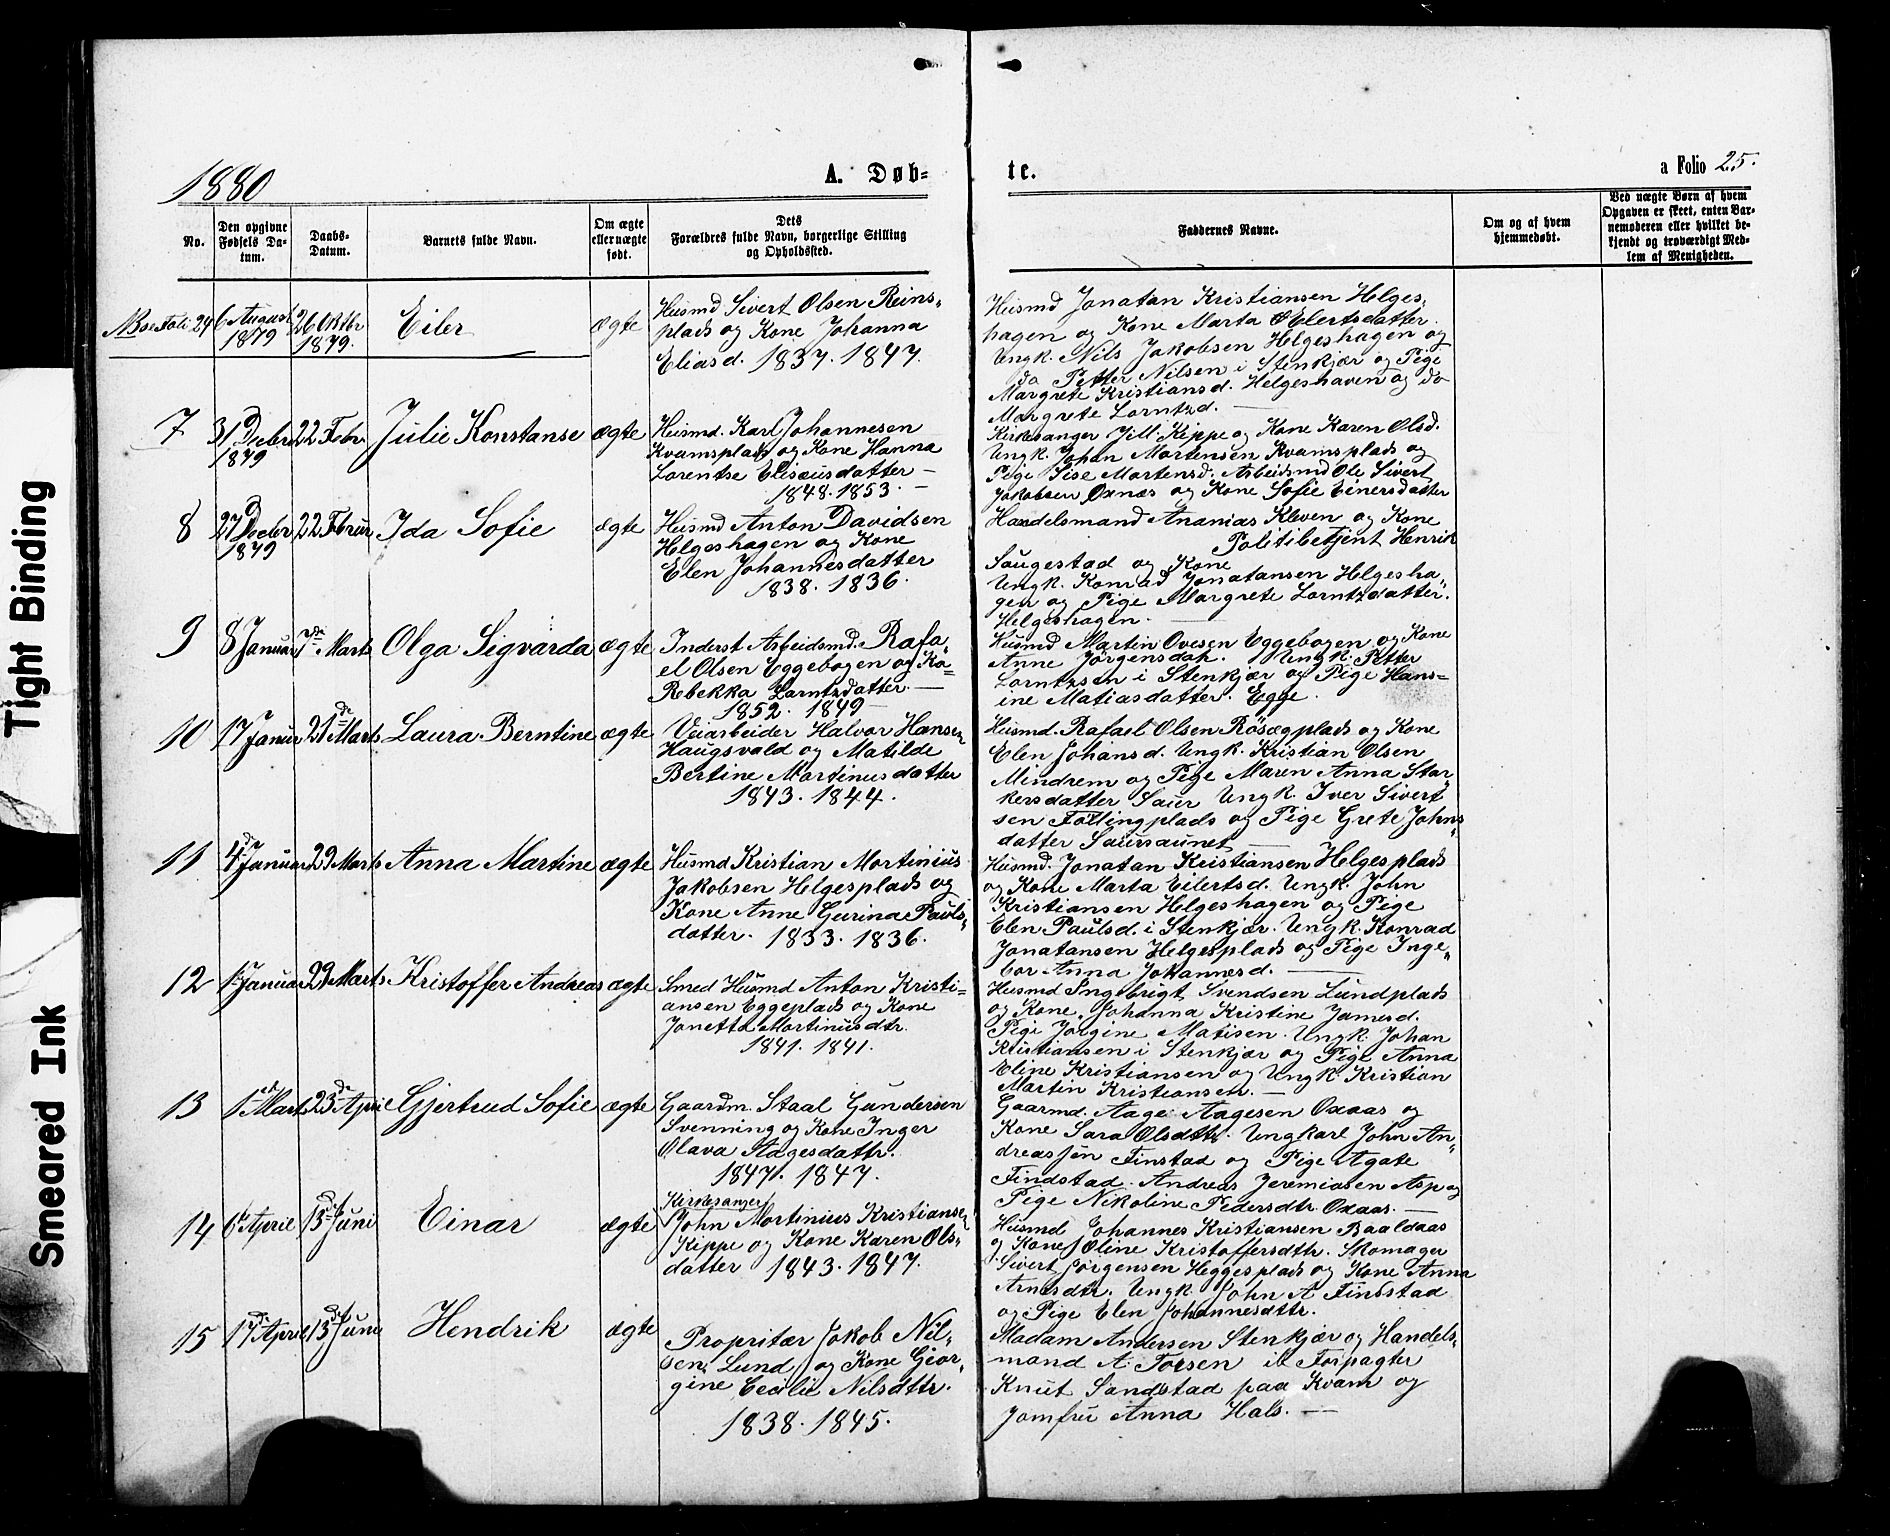 Tight Binding
Smeared Ink
1880
A. Døb-
te.
a Folio 25.
No.
Den opgivne Fødsels Da-
tum.
Daabs-
Datum.
Barnets fulde Navn.
Om ægte
eller uægte
født.
Dets
Forældres fulde Navn, borgerlige Stilling
og Opholdssted.
Faddernes Navne.
Om og af hvem
hjemmedøbt.
Ved uægte Børn af hvem
Opgaven er skeet, enten Bar-
nemoderen eller hvilket be-
kjendt og troværdigt Med-
lem af Menigheden.
6 August
1879
26 Oktbr
1879.
Eiler
ægte
Husmd Sivert Olsen Reins-
plads og Kone Johanna
Eliasd. 1837. 1847.
Husmd Jonatan Kristiansen Helges-
hagen og Kone Marta Eilertsdatter
Ungk. Nils Jakobsen Helgeshagen og
do Petter Nilsen i Stenkjær og Pige
Margrete Kristiansd. Helgeshaven og do
Margrete Lorntzd.
7
31 Decbr
1879
22 Febr.
Julie Konstanse
ægte
Husmd. Karl Johannesen
Kvamsplads og Kone Hanna
Lorentse Elisæusdatter –
1848. 1853. –
Kirkesanger J.M. Kippe og Kone Karen Olsd.
Ungk. Johan Mortensen Kvamsplads og
Pige Sise Martensd. Arbeidsmd Ole Sivert
Jakobsen Oxnæs og Kone Sofie Einersdatter
8
27 Decbr
1879
22 Februr
Ida Sofie
ægte
Husmd Anton Davidsen
Helgeshagen og Kone
Elen Johannesdatter
1838. 1836.
Handelsmand Ananias Kleven og Kone
Politibetjent Henrik
Saugestad og Kone
Ungk. Konrad Jonatansen Helgesha-
gen og Pige Margrete Lorntzdatter.
Helgeshagen. –
9
8 Januar
7de Marts
Olga Sigvarda
ægte
Inderst Arbeidsmd. Rafa-
el Olsen Eggebogen og Ko-
Rebekka Larntzdatter –
1852. 1849 –
Husmd Martin Ovesen Eggebogen og Kone
Anne Jørgensdatr. Ungk. Petter
Lorntzsen i Stenkjær og Pige Hans-
ine Matiasdatter. Egge.
10
17 Januar
21de Marts
Laura Berntine
ægte
Veiarbeider Halvor Hansen
Haugsvald og Matilde
Bertine Martinusdatter
1843. 1844.
Husmd. Rafael Olsen Rösægplads og Kone
Elen Johansd. Ungk. Kristian Olsen
Mindrem og Pige Maren Anna Star-
kersdatter Saur Ungk. Iver Sivert
sen Föllingplads og Pige Grete Johns-
datter Saursaunet –
11
4de Januar
29 Marts
Anna Martine
ægte
Husmd Kristian Mortinius
Jakobsen Helgesplads og
Kone Anne Gurina Pauls-
datter. 1833. 1836.
Husmd. Jonatan Kristiansen Helgesplads
og Kone Marta Eilertsd. Ungk. John
Kristiansen Helgeshagen og Pige
Elen Paulsd. i Stenkjær. Ungk. Konrad
Jonatansen Helgesplads og Pige Inge-
bor Anna Johannesd. –
12
1 Januar
29 Marts
Kristoffer Andreas
ægte
Smed Husmd Anton Kristi-
ansen Eggeplads og Kone
Jonetta Mortinusdtr.
1841. 1841.
Husmd Ingebrigt Svendsen Lundplads
og Kone Johanna Kristine Jamesd.
Pige Jørgine Matisen. Ungk. Johan
Kristiansen i Stenkjær og Pige Anna
Eline Kristiansen og Ungk. Kristian
Martin Kristiansen. –
13
1 Marts
23de April
Gjertrud Sofie
ægte
Gaardm. Staal Gundersen
Svenning og Kone Inger
Olava Aagesdattr.
1847. 1847.
Gaarmd. Aage Aagesen Oxaas og
Kone Sara Olsdttr. Ungkarl John An-
dreassen Finstad og Pige Agate
Findstad. Andreas Jeremiasen Asp og
Pige Nikoline Pedersdtr. Oxaas. –
14
6 April
13de Juni
Einar
ægte
Kirkesanger
John Mortinius Kristiansen
Kippe og Kone Karen Ols-
datter 1843. 1847.
Husmd Johannes Kristiansen Baaldaas
og Kone Oline Kristoffersdtr. Skomager
Sivert Jørgensen Heggesplads og Kone Anna
Arnesdtr. Ungk. John A Findstad
og Pige Elen Johannesdttr.
15
17de April
13de Juni
Hendrik
ægte
Propritær Jakob Nil-
sen Lund og Kone Geor-
gine Cecilie Nilsdttr.
1838. 1845.
Madam Andersen Stenkjær og Handels-
mand A. Torsen ib Forpagter
Knut Sandstad paa Kvam og
Jomfru Anna Hals. –